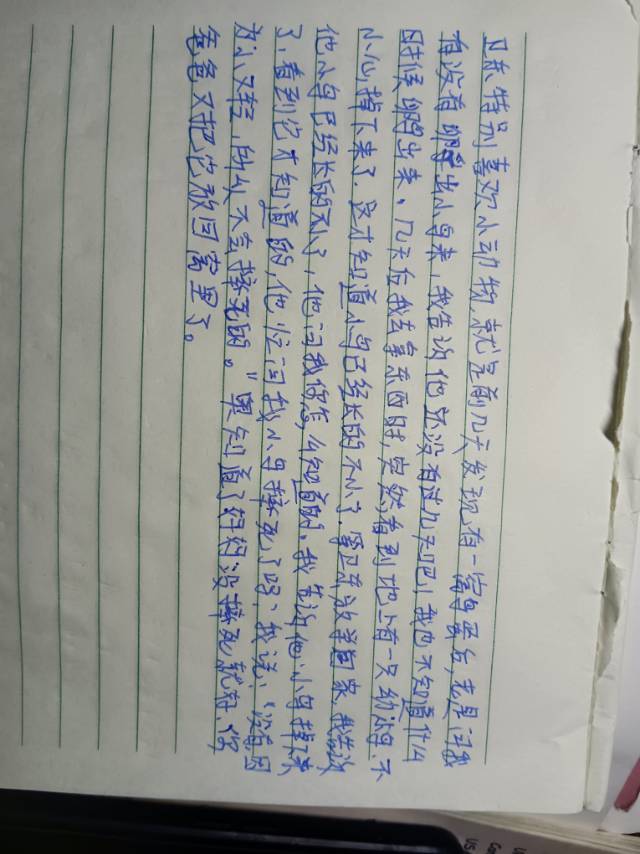 卫东特别喜欢小动物,就是前几天发现有一窝鸟蛋后,老是问我
有没有孵出小鸟来,我告诉他还没有过几天吧,我也不知道什么
时候孵出来。几天后我去拿东西时,突然看到地上有一只幼鸟,不
小心掉下来了,这才知道小鸟已经长的不小了.等卫东放学回家,我告诉
他小鸟已经长的不小了,他问我你怎么知道的。我告诉他,小鸟掉下来
了,看到它才知道的,他忙问我小鸟摔死了吗,我说:“没有因
为小又轻 所以不会摔死的。”东知道了好好:没摔死就好,你
爸爸又把它放回窝里了。